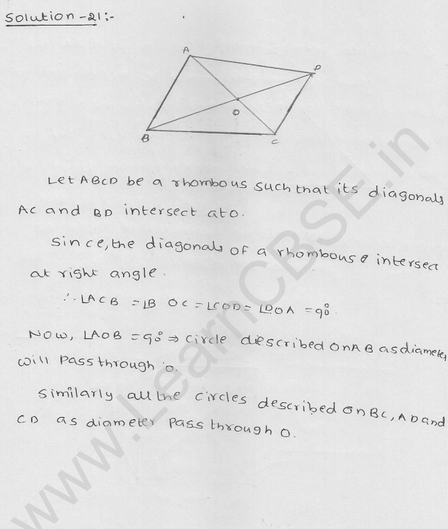 Solution-21:-
A
D
O
B
C
Let ABCD be a rhombous such that its diagonals
AC and BD intersect at O.
Since, the diagonals of a rhombouse intersect
at right angle.
∴ ∠ACB = ∠BOC = ∠COD = ∠DOA = 90°
Now, ∠AOB = 90° ⇒ circle described on AB as diameter
will pass through O.
Similarly all the circles described on BC, AD and
CD as diameter pass through O.
www.LearnCBSE.in